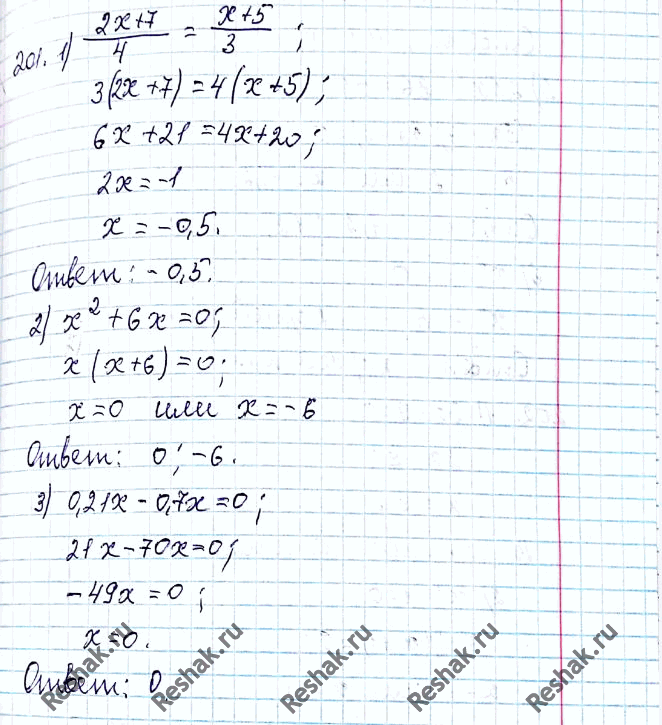 201. 1) (2x+7)/4 = (x+5)/3 ;
3(2x+7)=4(x+5);
6x+21=4x+20;
2x=-1
x=-0,5.
Ответ: -0,5.
2) x²+6x=0;
x(x+6)=0;
x=0 или x=-6
Ответ: 0; -6.
3) 0,21x-0,7x=0;
21x-70x=0;
-49x=0;
x=0.
Ответ: 0
Reshak.ru Reshak.ru Reshak.ru Reshak.ru Reshak.ru